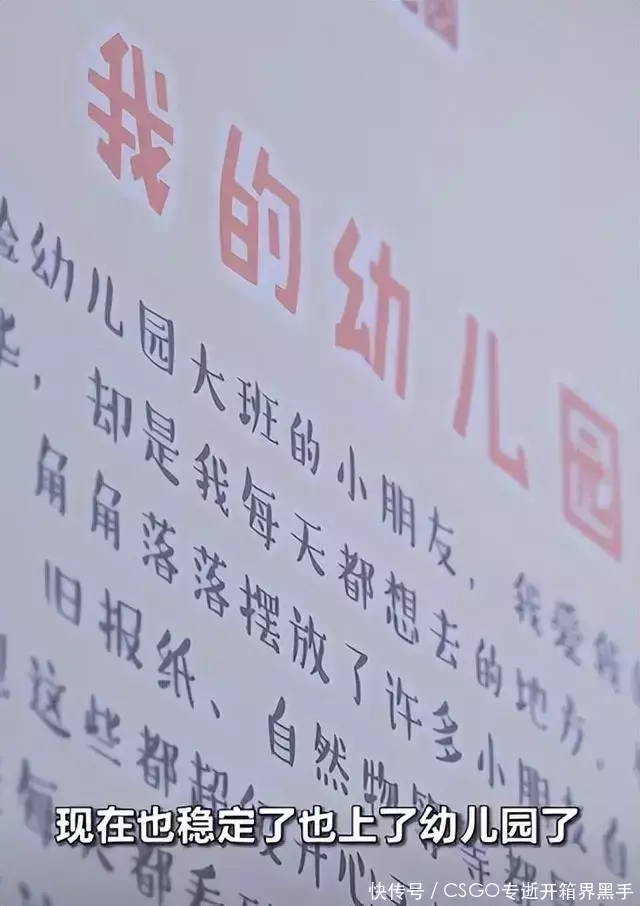 园
我的幼儿园
幼儿园大班的小朋友，我爱
，却是我每天都想去的地方，
角角落落摆放了许多小朋友自
旧报纸、自然物等等都
这些都超级开心
每天都看
现在也稳定了也上了幼儿园了
快传号/CSGO专逝开箱界黑手